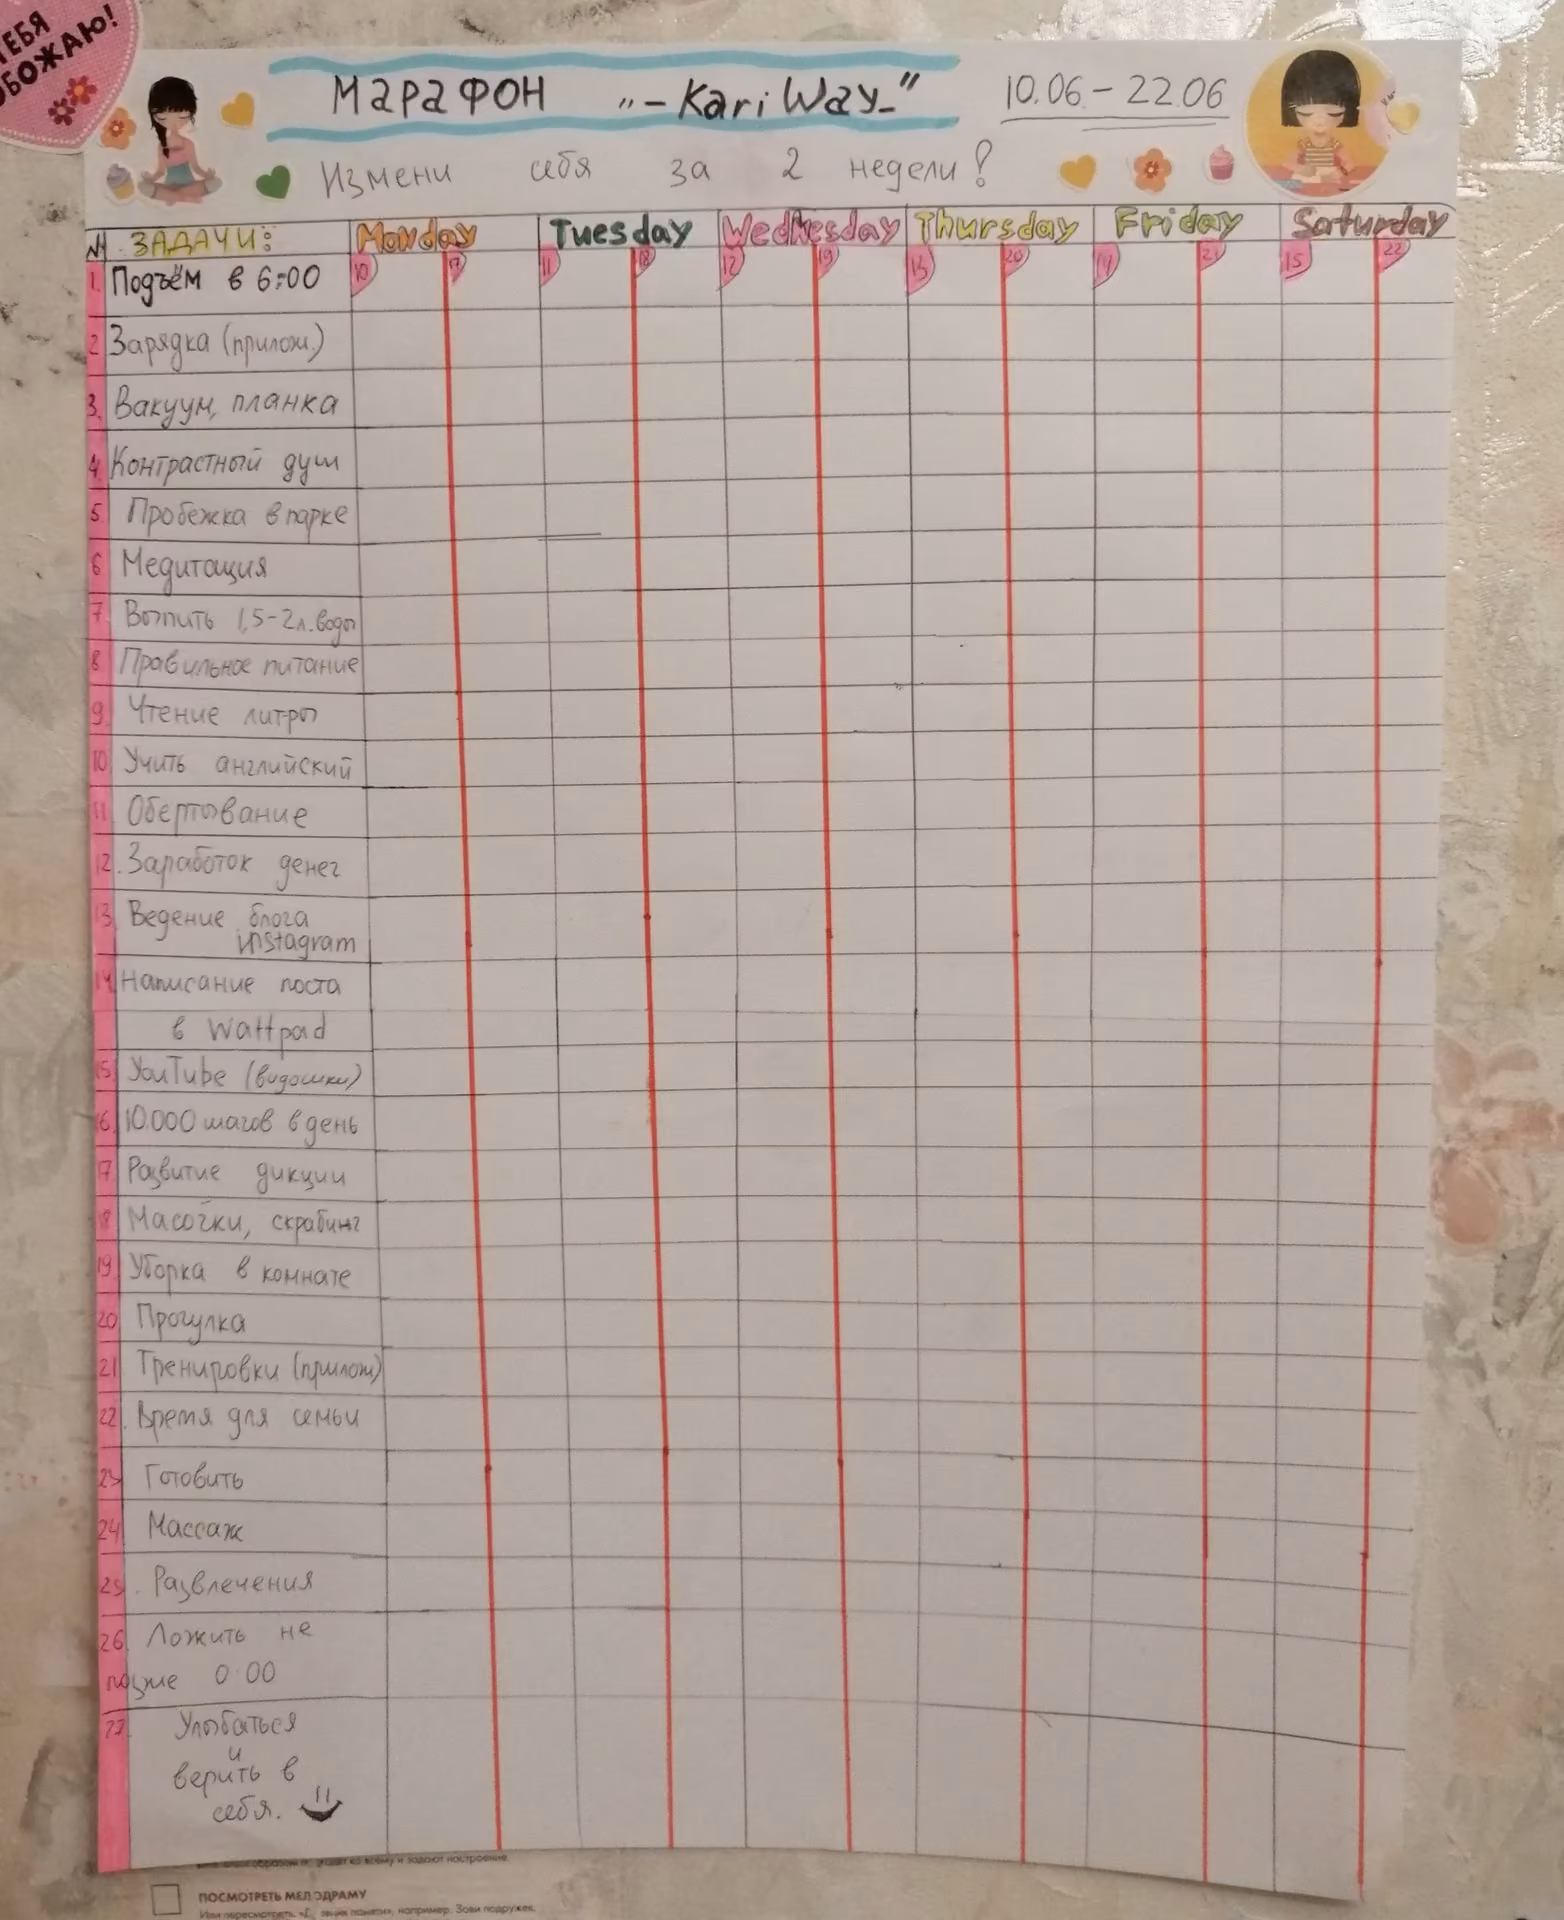 ТЕБЯ
ОБОЖАЮ!
МАРАФОН "-Kari Way-" 10.06 - 22.06
Измени себя за 2 недели!
№ ЗАДАЧИ: Monday Tuesday Wednesday Thursday Friday Saturday
10 17 11 18 12 19 13 20 14 21 15 22
1. Подъём в 6:00
2 Зарядка (прилож.)
3. Вакуум, планка
4. Контрастный душ
5. Пробежка в парке
6 Медитация
7 Выпить 1,5-2л. воды
8 Правильное питание
9. Чтение литры
10 Учить английский
11 Обертывание
12. Заработок денег
13 Ведение блога
instagram
14 Написание поста
в Wattpad
15 YouTube (видошки)
16. 10.000 шагов в день
17 Развитие дикции
18 Масочки, скрабинг
19 Уборка в комнате
20 Прогулка
21 Тренировки (прилож)
22. Время для семьи
23 Готовить
24 Массаж
25. Развлечения
26. Ложить не
позже 0:00
27. Улыбаться
и
верить в
себя.
образом и задают настроение.
ПОСМОТРЕТЬ МЕЛОДРАМУ
Или пересмотреть. например. Зови подружек.